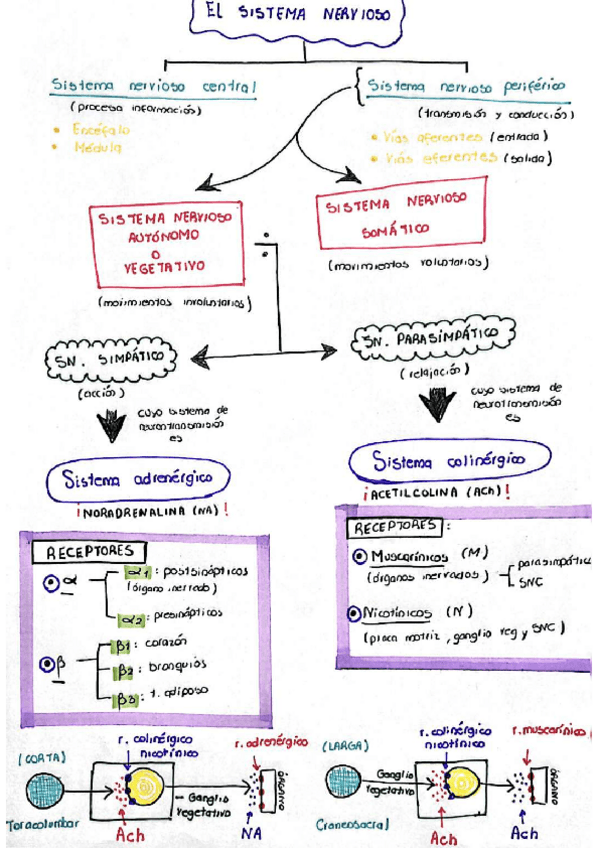 EL SISTEMA NERVIOSO
Sistema nervioso central
(procesa información)
• Encéfalo
• Médula
Sistema nervioso periférico
(transmisión y conducción)
• Vías aferentes (entrada)
• Vías eferentes (salida)
SISTEMA NERVIOSO
AUTÓNOMO
O
VEGETATIVO
(movimientos involuntarios)
SISTEMA NERVIOSO
SOMÁTICO
(movimientos voluntarios)
SN. SIMPÁTICO
(acción)
cuyo sistema de
neurotransmisión
es
SN. PARASIMPÁTICO
(relajación)
cuyo sistema de
neurotransmisión
es
Sistema adrenérgico
¡NORADRENALINA (NA)!
Sistema colinérgico
¡ACETILCOLINA (ACh)!
RECEPTORES
α
α1: postsinápticos
(órgano inervado)
α2: presinápticos
β
β1: corazón
β2: bronquios
β3: t. adiposo
RECEPTORES:
Muscarínicos (M)
(órganos inervados)
parasimpátic
SNC
Nicotínicos (N)
(placa motriz, ganglio veg y SNC)
(CORTA)
Toracolumbar
r. colinérgico
nicotínico
r. adrenérgico
Ganglio
vegetativo
ÓRGANO
Ach
NA
(LARGA)
Craneosacral
Ganglio
vegetativo
r. colinérgico
nicotínico
r. muscarínico
ÓRGANO
Ach
Ach